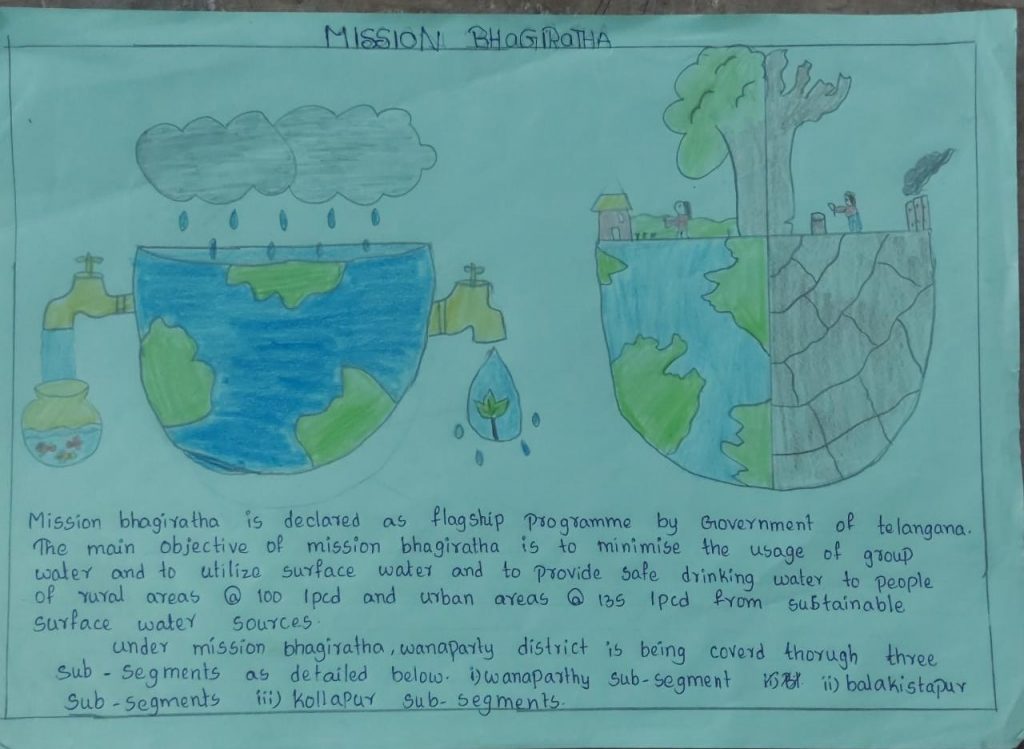 MISSION BHAGIRATHA
Mission bhagiratha is declared as flagship programme by Government of telangana.
The main objective of mission bhagiratha is to minimise the usage of group
water and to utilize surface water and to provide safe drinking water to people
of rural areas @ 100 lpcd and urban areas @ 135 lpcd from sustainable
surface water sources.
under mission bhagiratha, wanaparty district is being coverd thorugh three
sub-segments as detailed below. i) wanaparthy sub-segment ii) balakistapur
sub-segments iii) kollapur sub-segments.